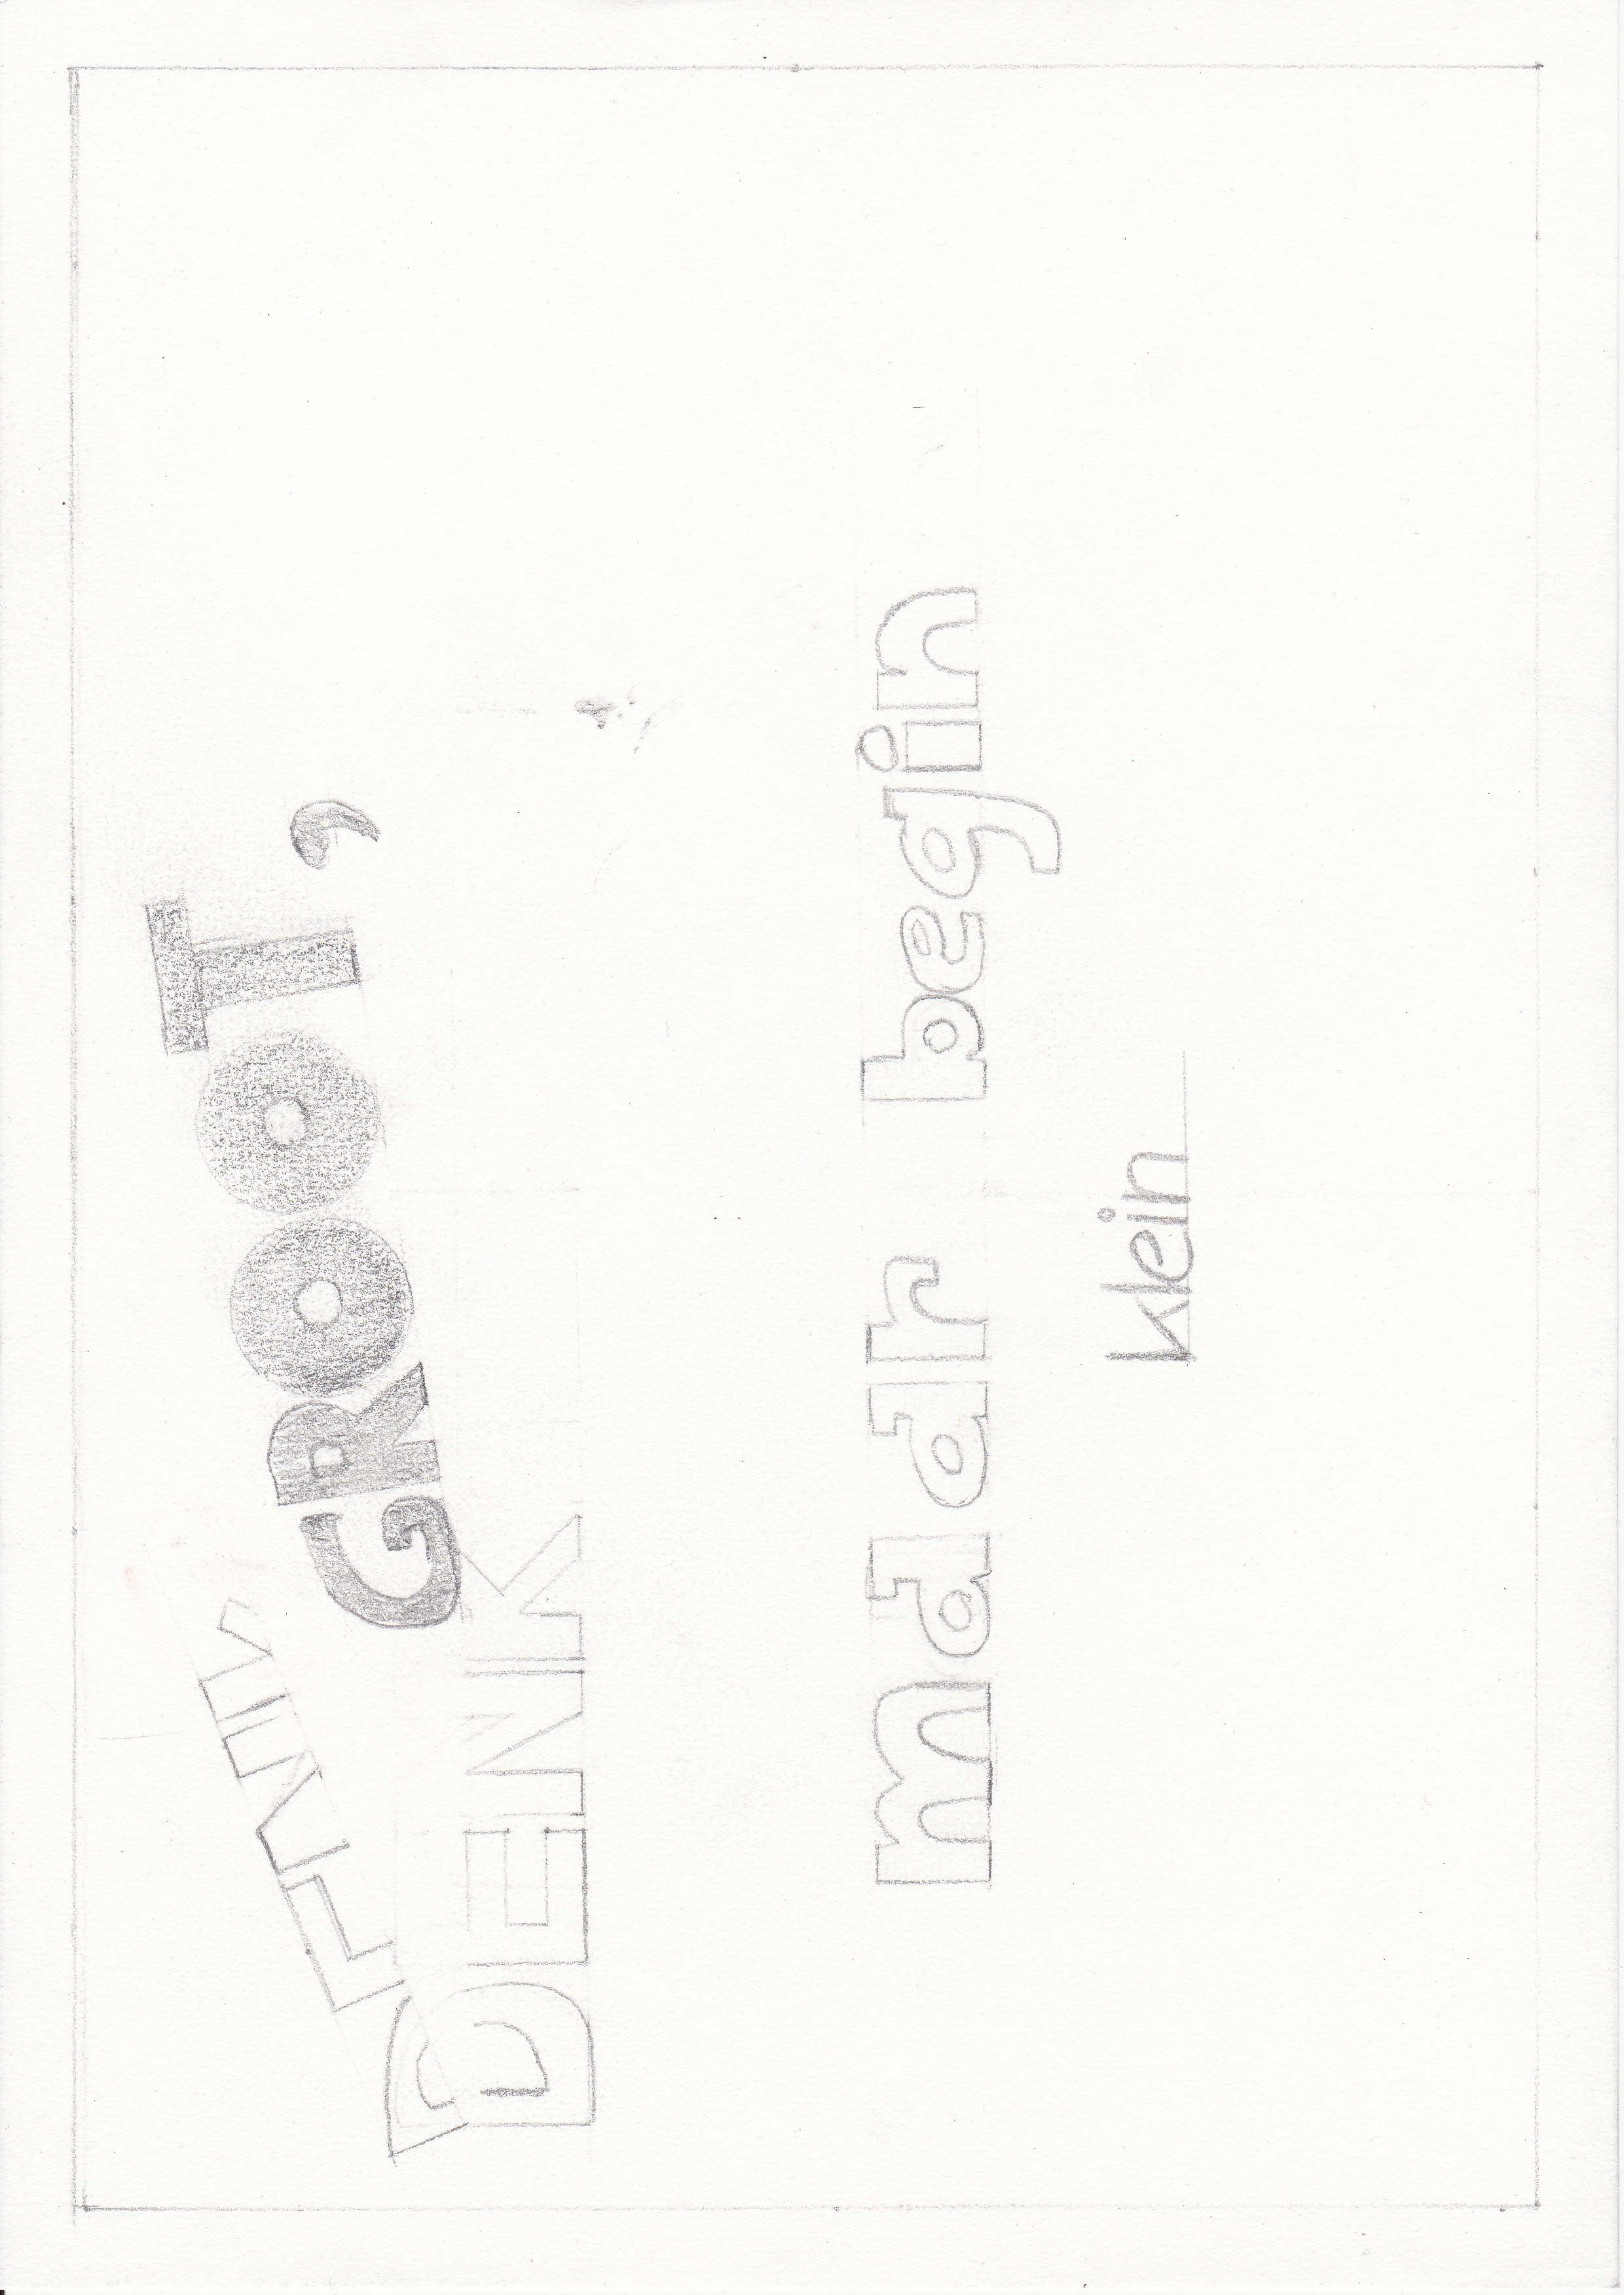 DENK GROOT,
maar begin
klein